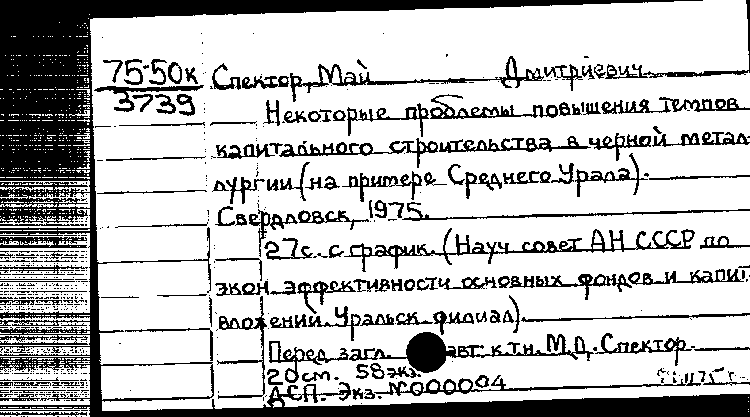 75-50к Спектор, Май Дмитриевич
3739
Некоторые проблемы повышения темпов
капитального строительства в черной метал-
лургии (на примере Среднего Урала).
Свердловск, 1975.
27с. с график. (Науч совет АН СССР по
экон. эффективности основных фондов и капит.
вложений. Уральск. филиал).
Перед загл. авт: к.т.н. М.Д. Спектор.
20см. 58 экз.
ДСП. Экз. №000004